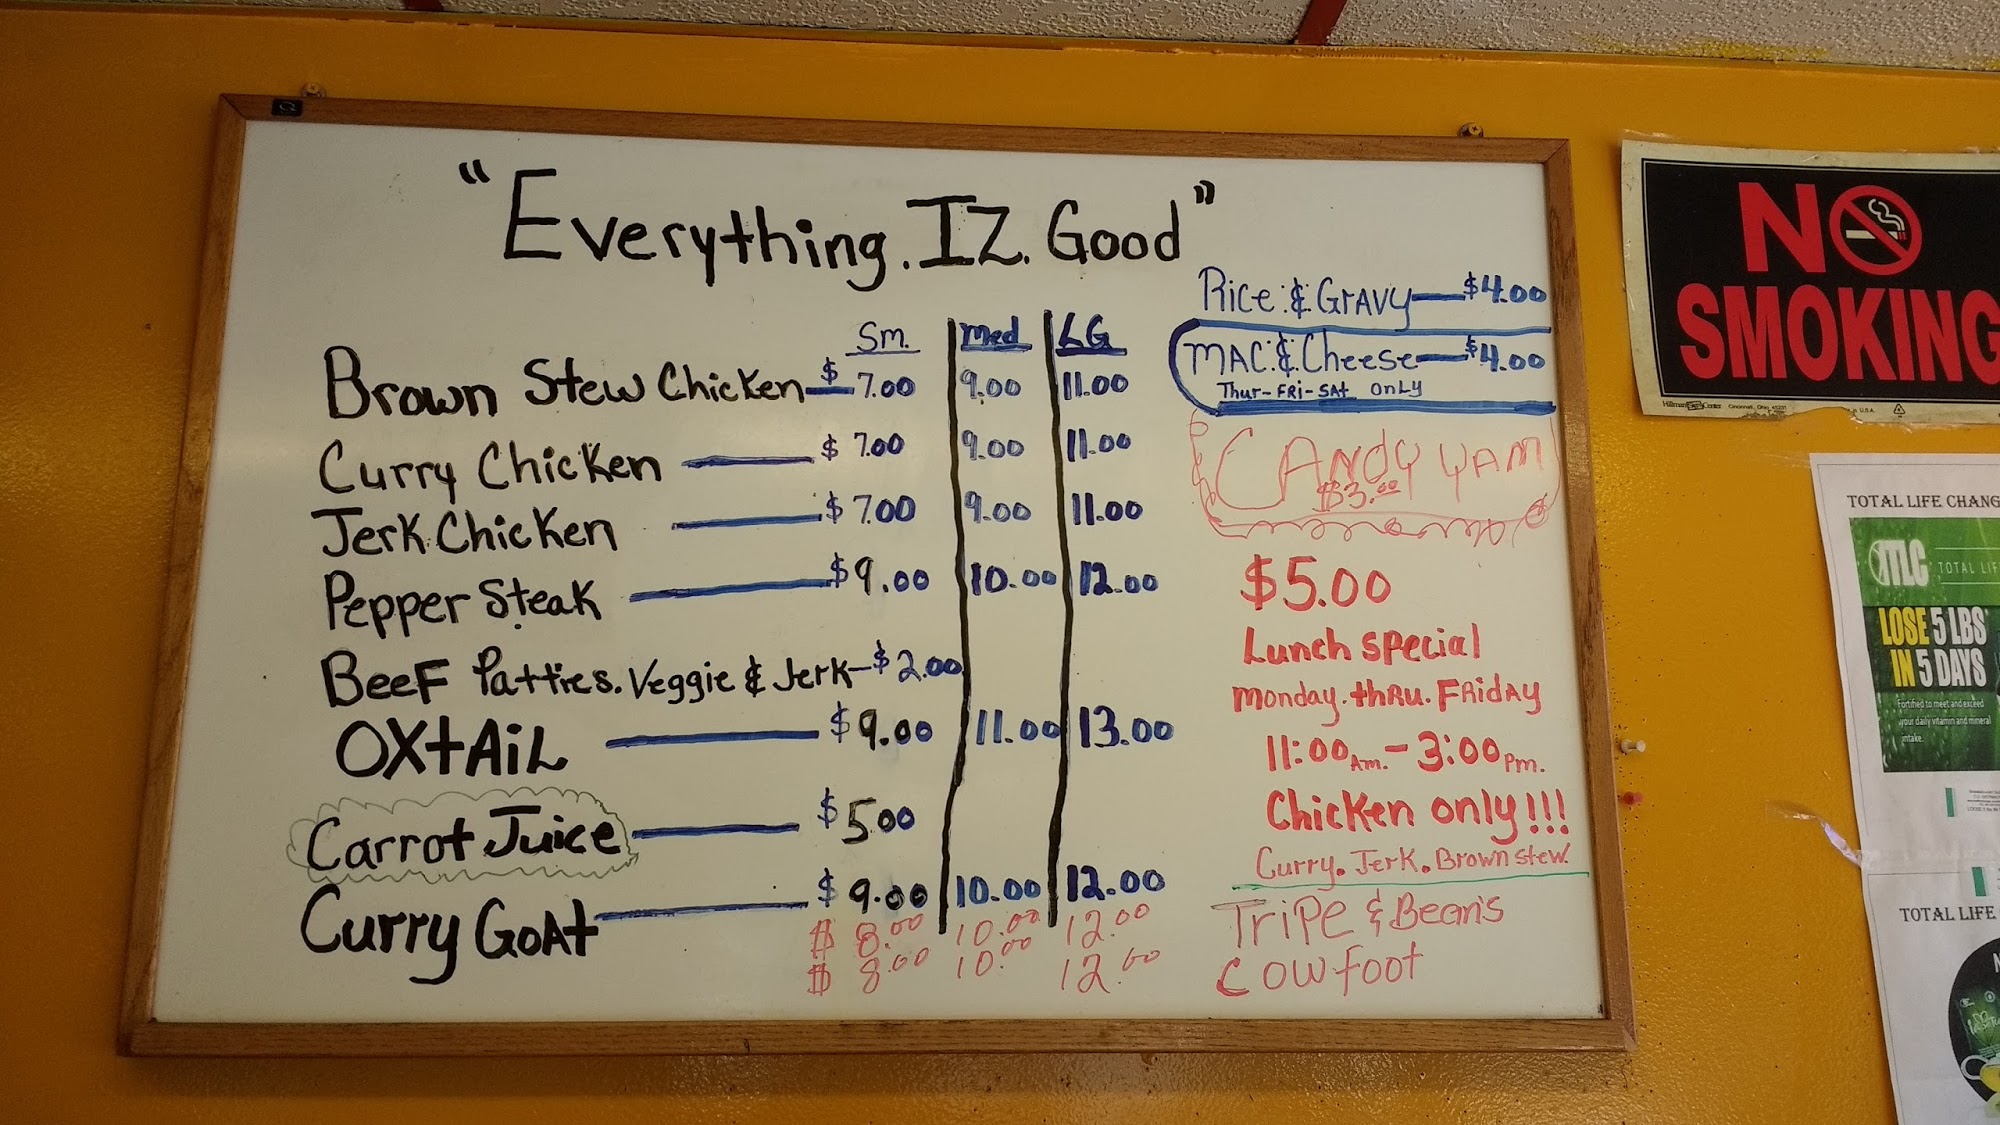 "Everything. IZ. Good"
Sm. Med LG
Brown Stew Chicken $7.00 9.00 11.00
Curry Chicken $7.00 9.00 11.00
Jerk Chicken $7.00 9.00 11.00
Pepper Steak $9.00 10.00 12.00
Beef Patties. Veggie & Jerk $2.00
OxtAiL $9.00 11.00 13.00
Carrot Juice $5.00
Curry GoAt $9.00 10.00 12.00
$8.00 10.00 12.00
$8.00 10.00 12.00
Rice & Gravy $4.00
MAC & Cheese $4.00
Thur-FRi-SAt only
CANdy YAM
$3.00
$5.00
Lunch special
Monday. thRu. FRidAy
11:00 Am. - 3:00 Pm.
Chicken only!!!
Curry. Jerk. Brown stew.
Tripe & Beans
Cow foot
NO
SMOKING
TOTAL LIFE CHANG
TLC TOTAL LIF
LOSE 5 LBS
IN 5 DAYS
Fortified to meet and exceed
your daily vitamin and mineral
intake.
TOTAL LIFE